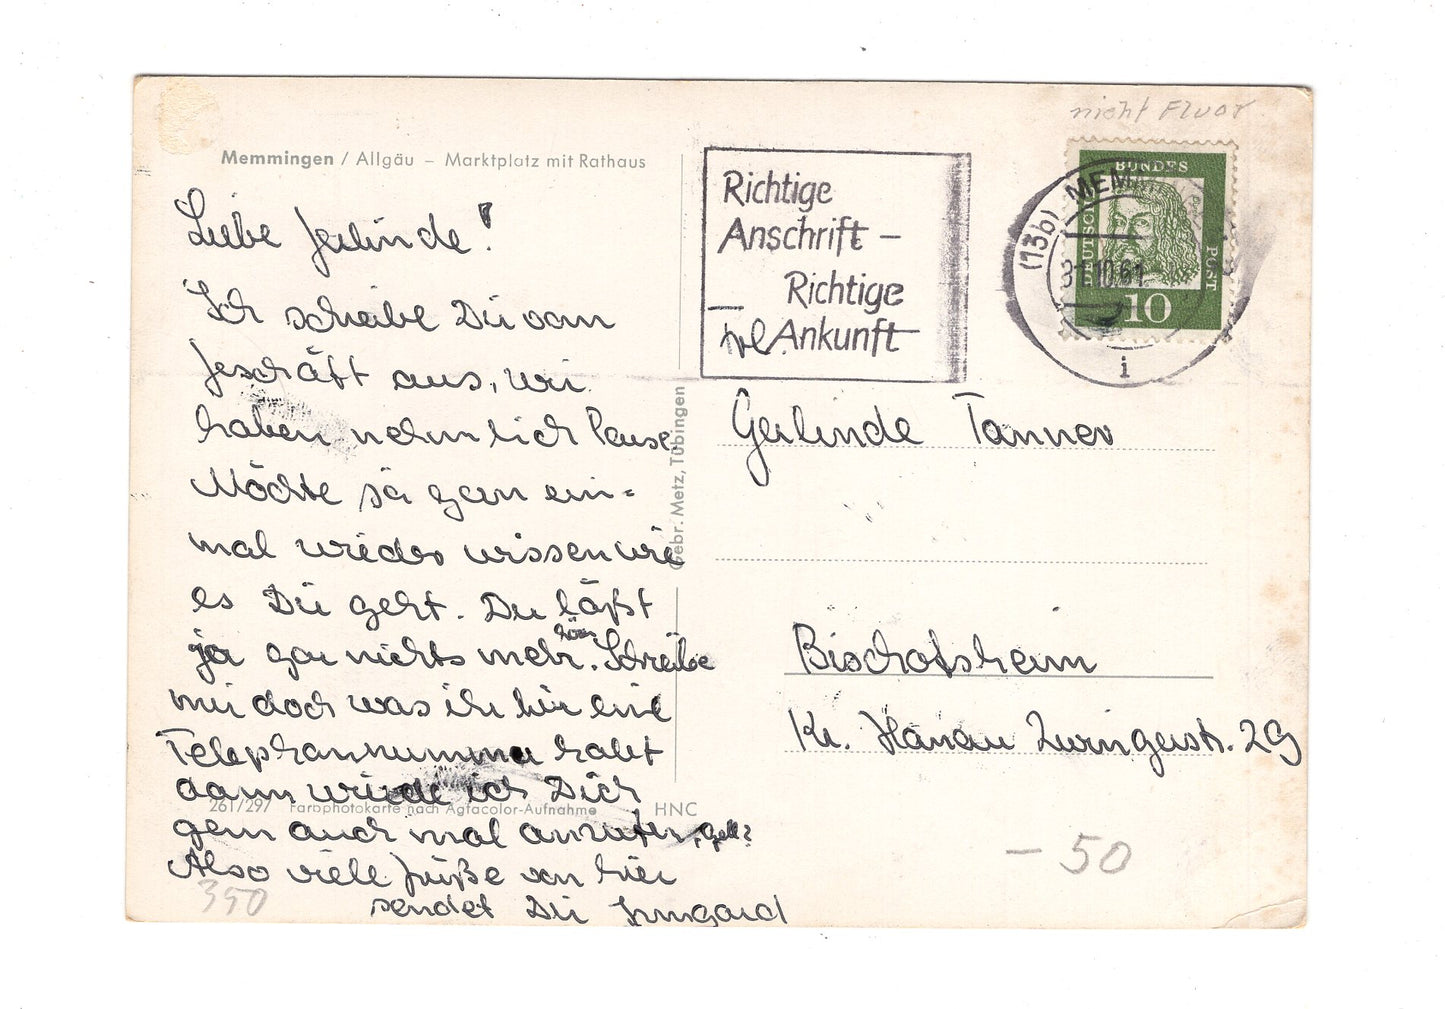 nicht Fluor
Memmingen / Allgäu – Marktplatz mit Rathaus
Liebe Gerlinde!
Ich schreibe Dir vom
Geschäft aus, wir
haben nehmlich Pause.
Möchte ja gern ein=
mal wieder wissen wie
es Dir geht. Du läßt
ja gar nichts mehr hören. Schreibe
mir doch was ihr für eine
Telephonnummer habt
dann würde ich Dich
gern auch mal anrufen, gell?
Also viele Grüße von hier
sendet Dir Irmgard
261/297 Farbphotokarte nach Agfacolor-Aufnahme HNC
350
Gebr. Metz, Tübingen
Richtige
Anschrift –
Richtige
Ankunft
(13b) MEMM
31.10.61
i
DEUTSCHE
BUNDES
POST
10
Gerlinde Tanner
Bischofsheim
Kr. Hanau Zwingerstr. 29
– 50